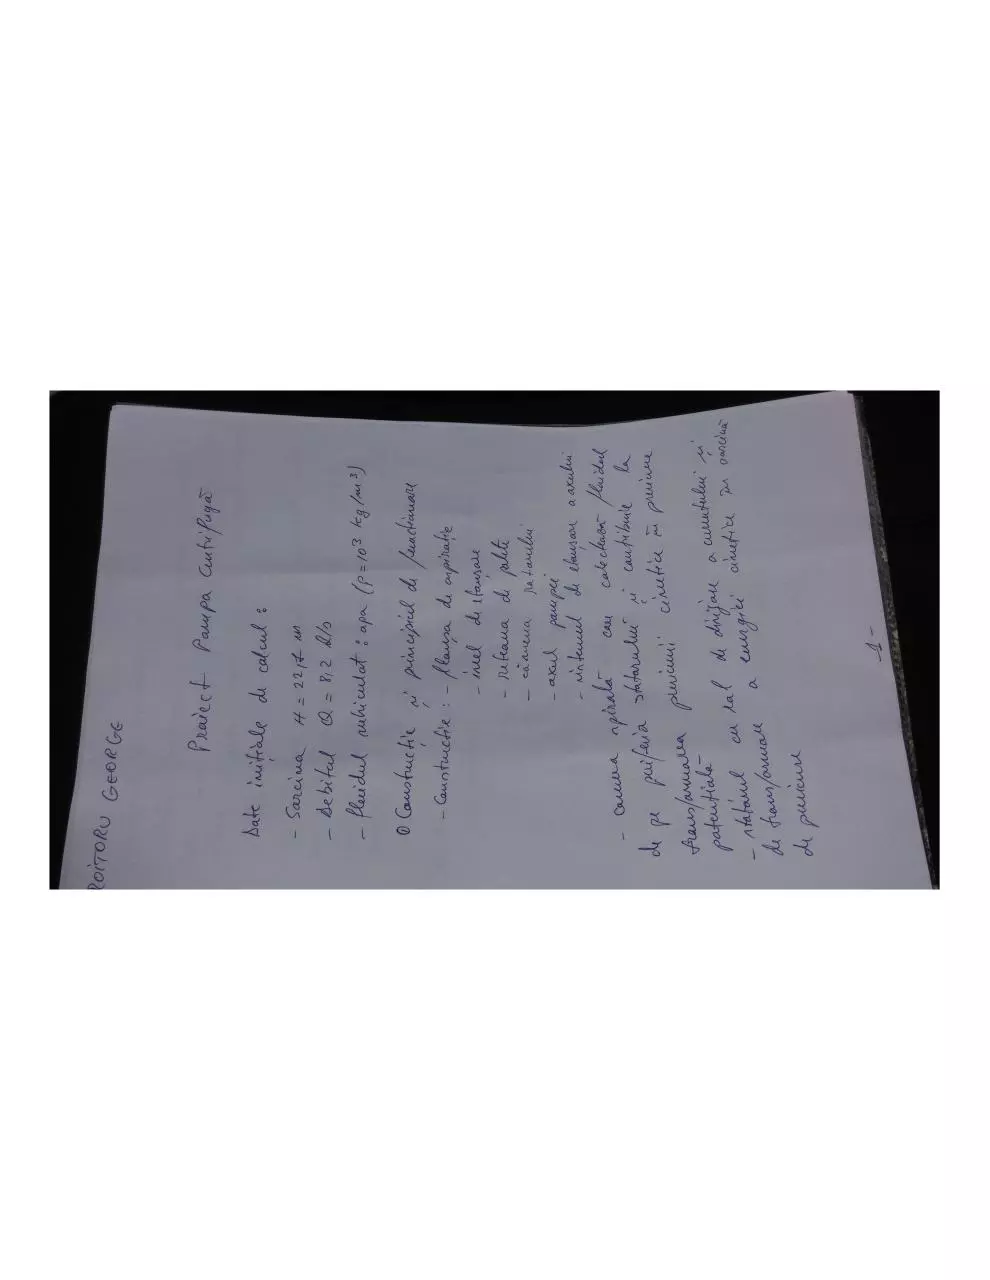 ROITORU GEORGE
Proiect Pompa Centrifugă
Date inițiale de calcul :
- Sarcina H = 22,7 m
- Debitul Q = 8,2 l/s
- fluidul vehiculat : apa (ρ = 10³ kg/m³)
① Construcție și principiul de functionare
- Constructie : - flanșa de aspirație
- inel de etansare
- reteaua de palete
- cămera rotorului
- axul pompei
- sistemul de etanșare a axului
- camera spirală care colectează fluidul
de pe periferia statorului și contribuie la
transformarea presiunii cinetice în presiune
potențială
- statorul cu rol de dirijare a curentului și
de transformare a energiei cinetice în sarcină
de presiune
-1-